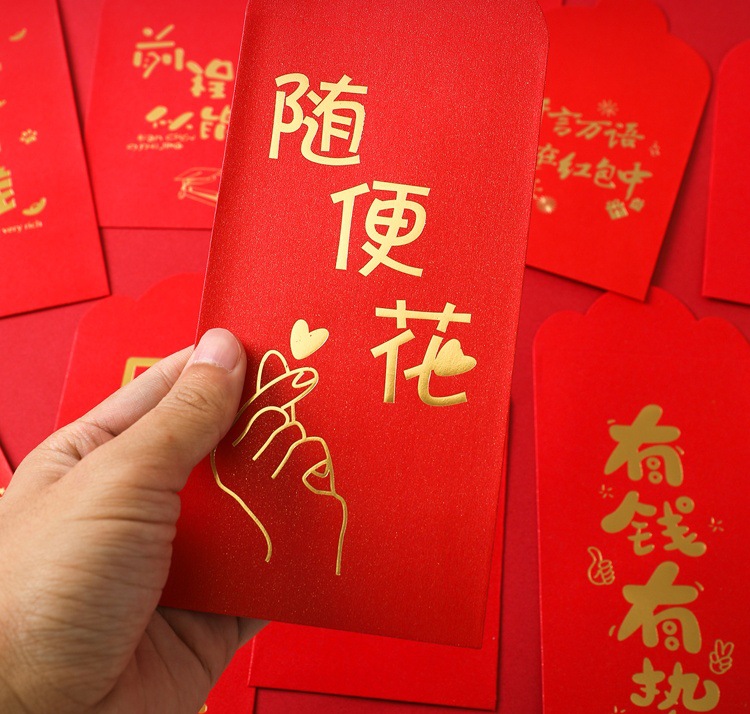 随
便
花
前程
似锦
言万语
在红包中
very rich
有
钱
有
势